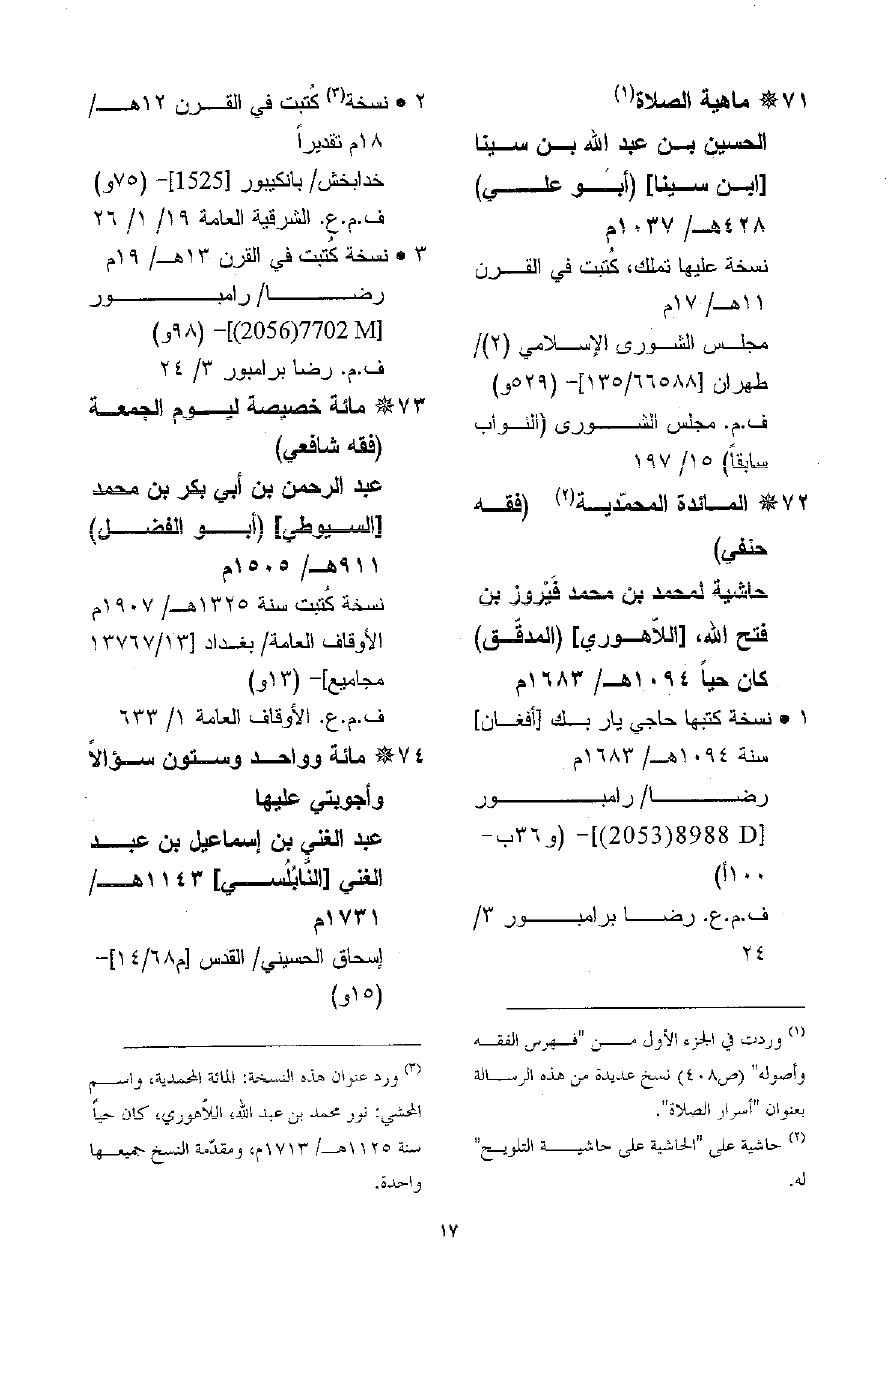 ٧١ * ماهية الصلاة(١)
الحسين بن عبد الله بن سينا
[ابن سينا] (أبو علي)
٤٢٨هـ/ ١٠٣٧م
نسخة عليها تملك، كُتبت في القرن
١١هـ/ ١٧م
مجلس الشورى الإسلامي (٢)/
طهران [١٣٥/٦٦٥٨٨]- (٥٢٩و)
ف.م. مجلس الشورى (النواب
سابقاً) ١٥/ ١٩٧
٧٢ * المائدة المحمّدية(٢) (فقه
حنفي)
حاشية لمحمد بن محمد فَيْروز بن
فتح الله، [اللاّهوري] (المدقّق)
كان حياً ١٠٩٤هـ/ ١٦٨٣م
١ • نسخة كتبها حاجي يار بك [أفغان]
سنة ١٠٩٤هـ/ ١٦٨٣م
رضا/ رامبور
[2053)8988 D)]- (و٣٦ب-
١٠٠أ)
ف.م.ع. رضا برامبور ٣/
٢٤
(١) وردت في الجزء الأول من "فهرس الفقه
وأصوله" (ص٤٠٨) نسخ عديدة من هذه الرسالة
بعنوان "أسرار الصلاة".
(٢) حاشية على "الحاشية على حاشية التلويح"
له.
٢ • نسخة(٣) كُتبت في القرن ١٢هـ/
١٨م تقديراً
خدابخش/ بانكيبور [1525]- (٧٥و)
ف.م.ع. الشرقية العامة ١٩/ ١/ ٢٦
٣ • نسخة كُتبت في القرن ١٣هـ/ ١٩م
رضا/ رامبور
[2056)7702 M)]- (٩٨و)
ف.م. رضا برامبور ٣/ ٢٤
٧٣ * مائة خصيصة ليوم الجمعة
(فقه شافعي)
عبد الرحمن بن أبي بكر بن محمد
[السيوطي] (أبو الفضل)
٩١١هـ/ ١٥٠٥م
نسخة كُتبت سنة ١٣٢٥هـ/ ١٩٠٧م
الأوقاف العامة/ بغداد [١٣٧٦٧/١٣
مجاميع]- (١٣و)
ف.م.ع. الأوقاف العامة ١/ ٦٣٣
٧٤ * مائة وواحد وستون سؤالاً
وأجوبتي عليها
عبد الغني بن إسماعيل بن عبد
الغني [النَّابُلُسي] ١١٤٣هـ/
١٧٣١م
إسحاق الحسيني/ القدس [م١٤/٦٨]-
(١٥و)
(٣) ورد عنوان هذه النسخة: المائة المحمدية، واسم
المحشي: نور محمد بن عبد الله، اللاّهوري، كان حياً
سنة ١١٢٥هـ/ ١٧١٣م، ومقدّمة النسخ جميعها
واحدة.
١٧